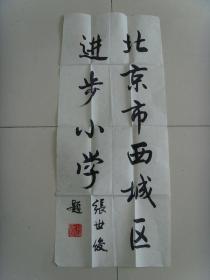 北京市西城区
进步小学
張世俊
題